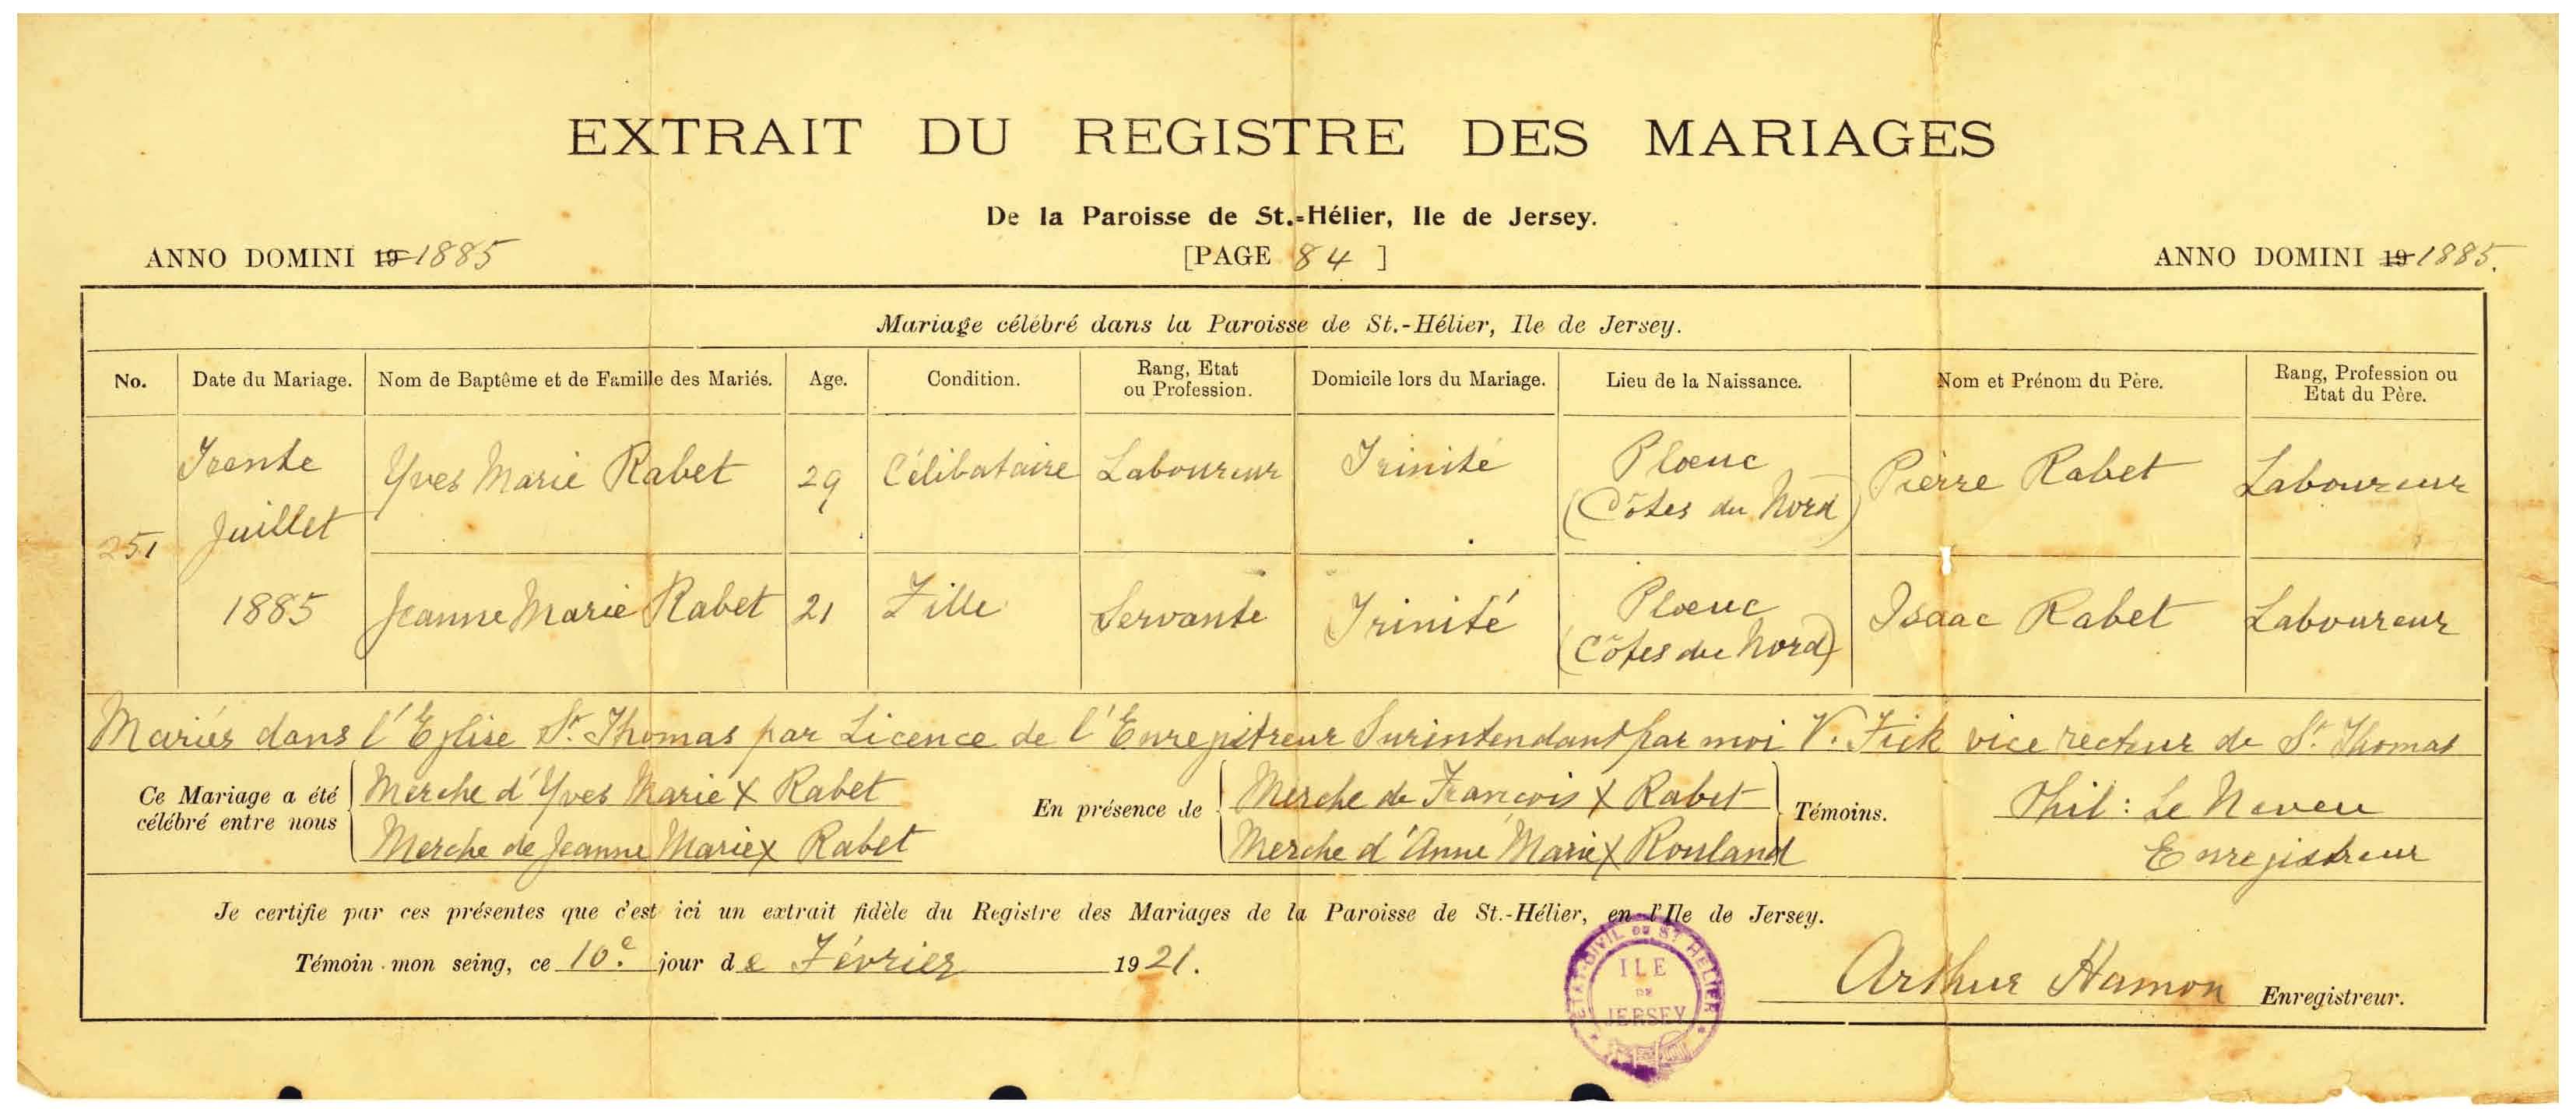 EXTRAIT DU REGISTRE DES MARIAGES
De la Paroisse de St.-Hélier, Ile de Jersey.
ANNO DOMINI 19 1885 [PAGE 84 ] ANNO DOMINI 19 1885.
Mariage célébré dans la Paroisse de St.-Hélier, Ile de Jersey.
No. Date du Mariage. Nom de Baptême et de Famille des Mariés. Age. Condition. Rang, Etat ou Profession. Domicile lors du Mariage. Lieu de la Naissance. Nom et Prénom du Père. Rang, Profession ou Etat du Père.
251 Trente Juillet 1885
Yves Marie Rabet 29 Célibataire Laboureur Trinité Plœuc (Côtes du Nord) Pierre Rabet Laboureur
Jeanne Marie Rabet 21 Fille Servante Trinité Plœuc (Côtes du Nord) Isaac Rabet Laboureur
Mariés dans l'Eglise St. Thomas par Licence de l'Enregistreur Surintendant par moi V. Fick vice recteur de St. Thomas
Ce Mariage a été célébré entre nous
Merche d'Yves Marie X Rabet
Merche de Jeanne Marie X Rabet
En présence de
Merche de François X Rabet
Merche d'Anne Marie X Rouland
Témoins.
Phil: Le Neveu
Enregistreur
Je certifie par ces présentes que c'est ici un extrait fidèle du Registre des Mariages de la Paroisse de St.-Hélier, en l'Ile de Jersey.
Témoin mon seing, ce 10e. jour de Février 1921.
Arthur Hamon Enregistreur.
ETAT-CIVIL DE ST HELIER
ILE
DE
JERSEY